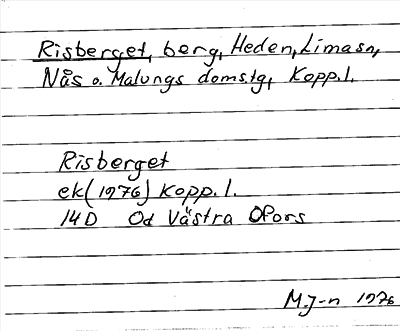 Risberget, berg, Heden, Lima sn,
Nås o. Malungs doms.tg, Kopp.l.
Risberget
ek (1976) Kopp. l.
14D Od Västra Ofors
M.J-n 1976